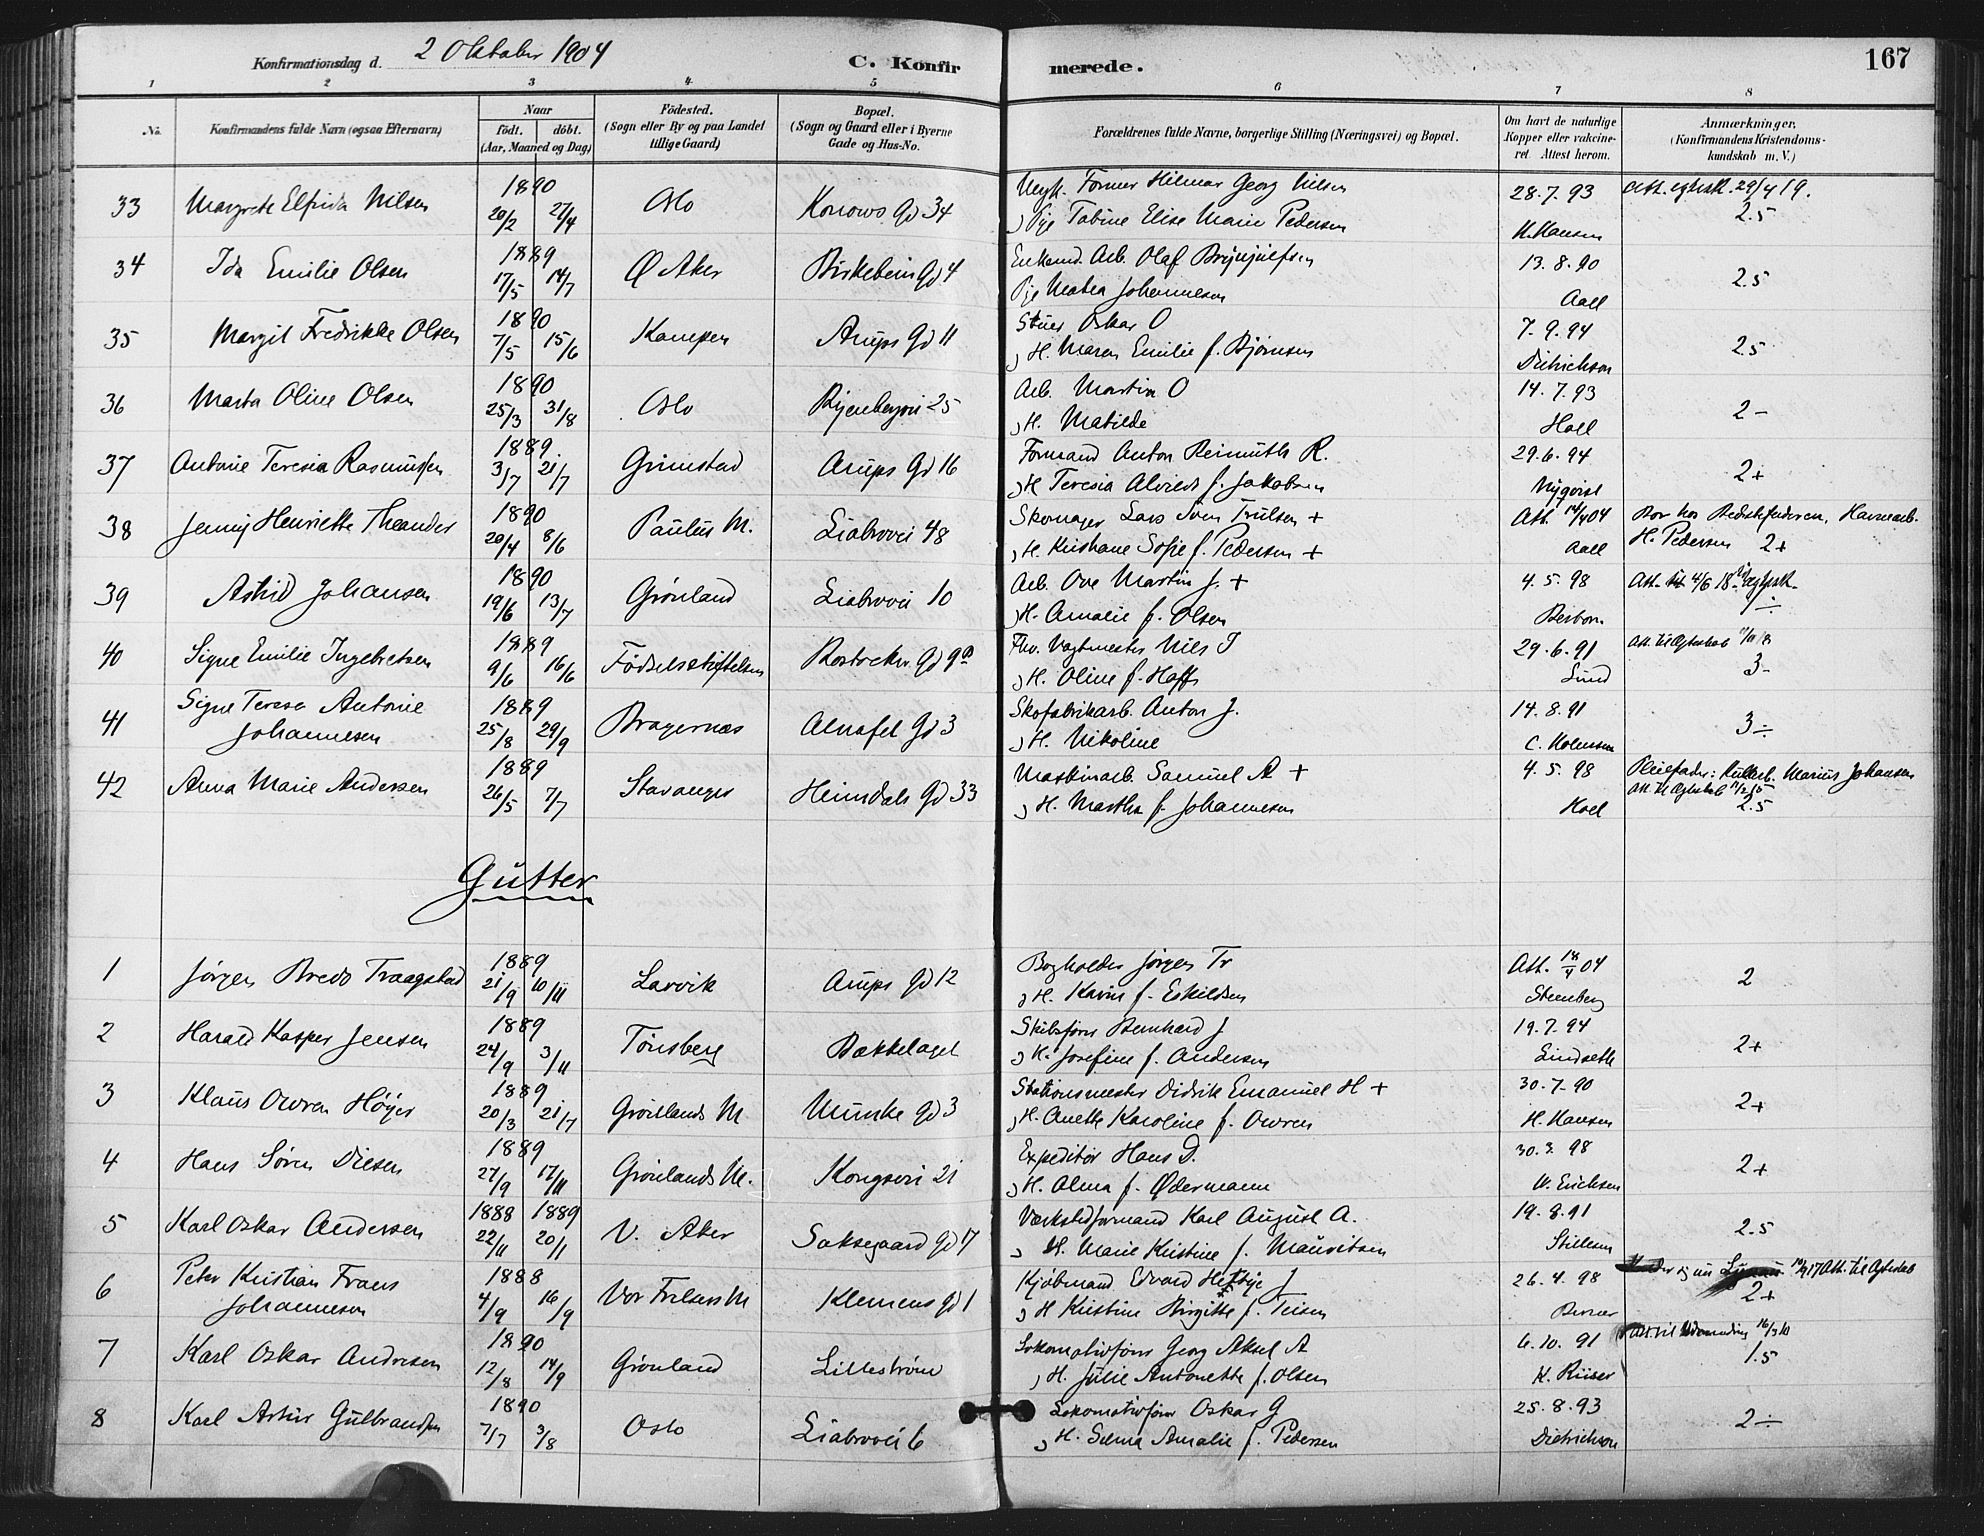 Konfirmationsdag d. 2 Oktober 1904
C. Konfirmerede.
167
1 2 3 4 5 6 7 8
No.
Konfirmandens fulde Navn (ogsaa Efternavn)
Naar
födt. döbt.
(Aar, Maaned og Dag)
Födested.
(Sogn eller By og paa Landet
tillige Gaard)
Bopæl.
(Sogn og Gaard eller i Byerne
Gade og Hus-No.
Forældrenes fulde Navne, borgerlige Stilling (Næringsvei) og Bopæl.
Om havt de naturlige
Kopper eller vakcine-
ret Attest herom.
Anmærkninger,
(Konfirmandens Kristendoms-
kundskab m. V.)
33 Margrete Elfrida Nilsen 1890 20/2 27/4 Oslo Konows Gd 34
Ugift. Former Hilmar Georg Nilsen
Pige Tabine Elise Marie Pedersen
28.7.93
H. Hansen
2.5
34 Ida Emilie Olsen 1889 17/5 14/7 Ø Aker Birkebein Gd 4
Enkemd. Arb. Olaf Brynjulfsen
Pige Matea Johannesen
13.8.90
Aall
2.5
35 Margit Fredrikke Olsen 1890 7/5 15/6 Kampen Arups Gd 11
Stuer Oskar O
H. Maren Emilie f. Bjørnsen
7.9.94
Dietrichson
2.5
36 Marta Oline Olsen 1890 25/3 31/8 Oslo Ryenbergvei 25
Arb. Martin O
H. Matilde
14.7.93
Holl
2-
37 Antonie Teresia Rasmussen 1889 3/7 21/7 Grimstad Arups Gd 16
Formand Anton Reimuth R.
H Teresia Alvilde f. Jakobsen
29.6.94
Nyqvist
2+
38 Jenny Henriette Theander 1890 20/4 8/6 Paulus M. Liabrovei 48
Skomager Lars Sven Trulsen +
H. Kristiane Sofie f. Pedersen +
Att. 14/4 04
Aall
Bor hos Bedstefaderen, Havnearb.
H. Pedersen 2+
39 Astrid Johansen 1890 19/6 13/7 Grønland Liabrovei 10
Arb. Ove Martin J. +
H. Amalie f. Olsen
4.5.98
40 Signe Emilie Ingebretsen 1889 9/6 16/6 Födselsstiftelsen Rostocker Gd 9a
Fhv. Vagtmester Nils I
H. Oline f. Hoff
29.6.91
Lund
Att. til Ægteskab
3-
41 Signe Teresa Antonie
Johannesen 1889 25/8 29/9 Bragernæs Alnafet Gd 3
Skofabrikarb. Anton J.
H. Nikoline
14.8.91
C. Holmsen
3÷
42 Anna Marie Andersen 1889 26/5 7/7 Stavanger Heimdals Gd 33
Maskinarb. Samuel A +
H. Martha f. Johannesen
4.5.98
Holl
Pleiefader: Kullarb. Marius Johansen
Att. til Ægteskab
2.5
Gutter
1 Jørgen Bredo Traagstad 1889 21/9 10/11 Larvik Arups Gd 12
Bogholder Jørgen Tr
H. Karin f. Eskildsen
Att. 18/4 04
Steenberg
2
2 Harald Kasper Jensen 1889 24/9 3/11 Tönsberg Bækkelaget
Skibsfører Bernhard J
H. Josefine f. Andersen
19.7.94
Lindseth
2+
3 Klaus Owren Höyer 1889 20/3 21/7 Grönlands M Munke Gd 3
Stationsmester Didrik Emanuel H +
H. Anette Karoline f. Owren
30.7.90
H. Hansen
2+
4 Hans Sören Diesen 1889 27/9 17/11 Grönlands M. Kongsvei 21
Expeditör Hans D.
H. Alma f. Ødermann
30.3.98
W. Erichsen
2+
5 Karl Oskar Andersen 1888 1889 22/11 20/1 V. Aker Saksegaard Gd 17
Værkstedformand Karl August A.
H. Marie Kristine f. Mauritsen
19.8.91
Stillesen
2.5
6 Peter Kristian Frans
Johannesen 1888 4/9 16/9 Vor Frelsers M Klemens Gd 1
Kjöbmand Edvard Heltzje J
H Kristine Birgitte f. Teisen
26.4.98
Att. til Ægteskab
2+
7 Karl Oskar Andresen 1890 12/8 14/9 Grönland Lilleström
Lokomotivförer Georg Aksel A
H. Julie Antonette f. Olsen
6.10.91
K. Riiser
1.5
8 Karl Artur Gulbrandsen 1890 7/7 3/8 Oslo Liabrovei 6
Lokomotivförer Oskar G
H. Selma Amalie f. Pedersen
25.8.93
Dietrichson
2-